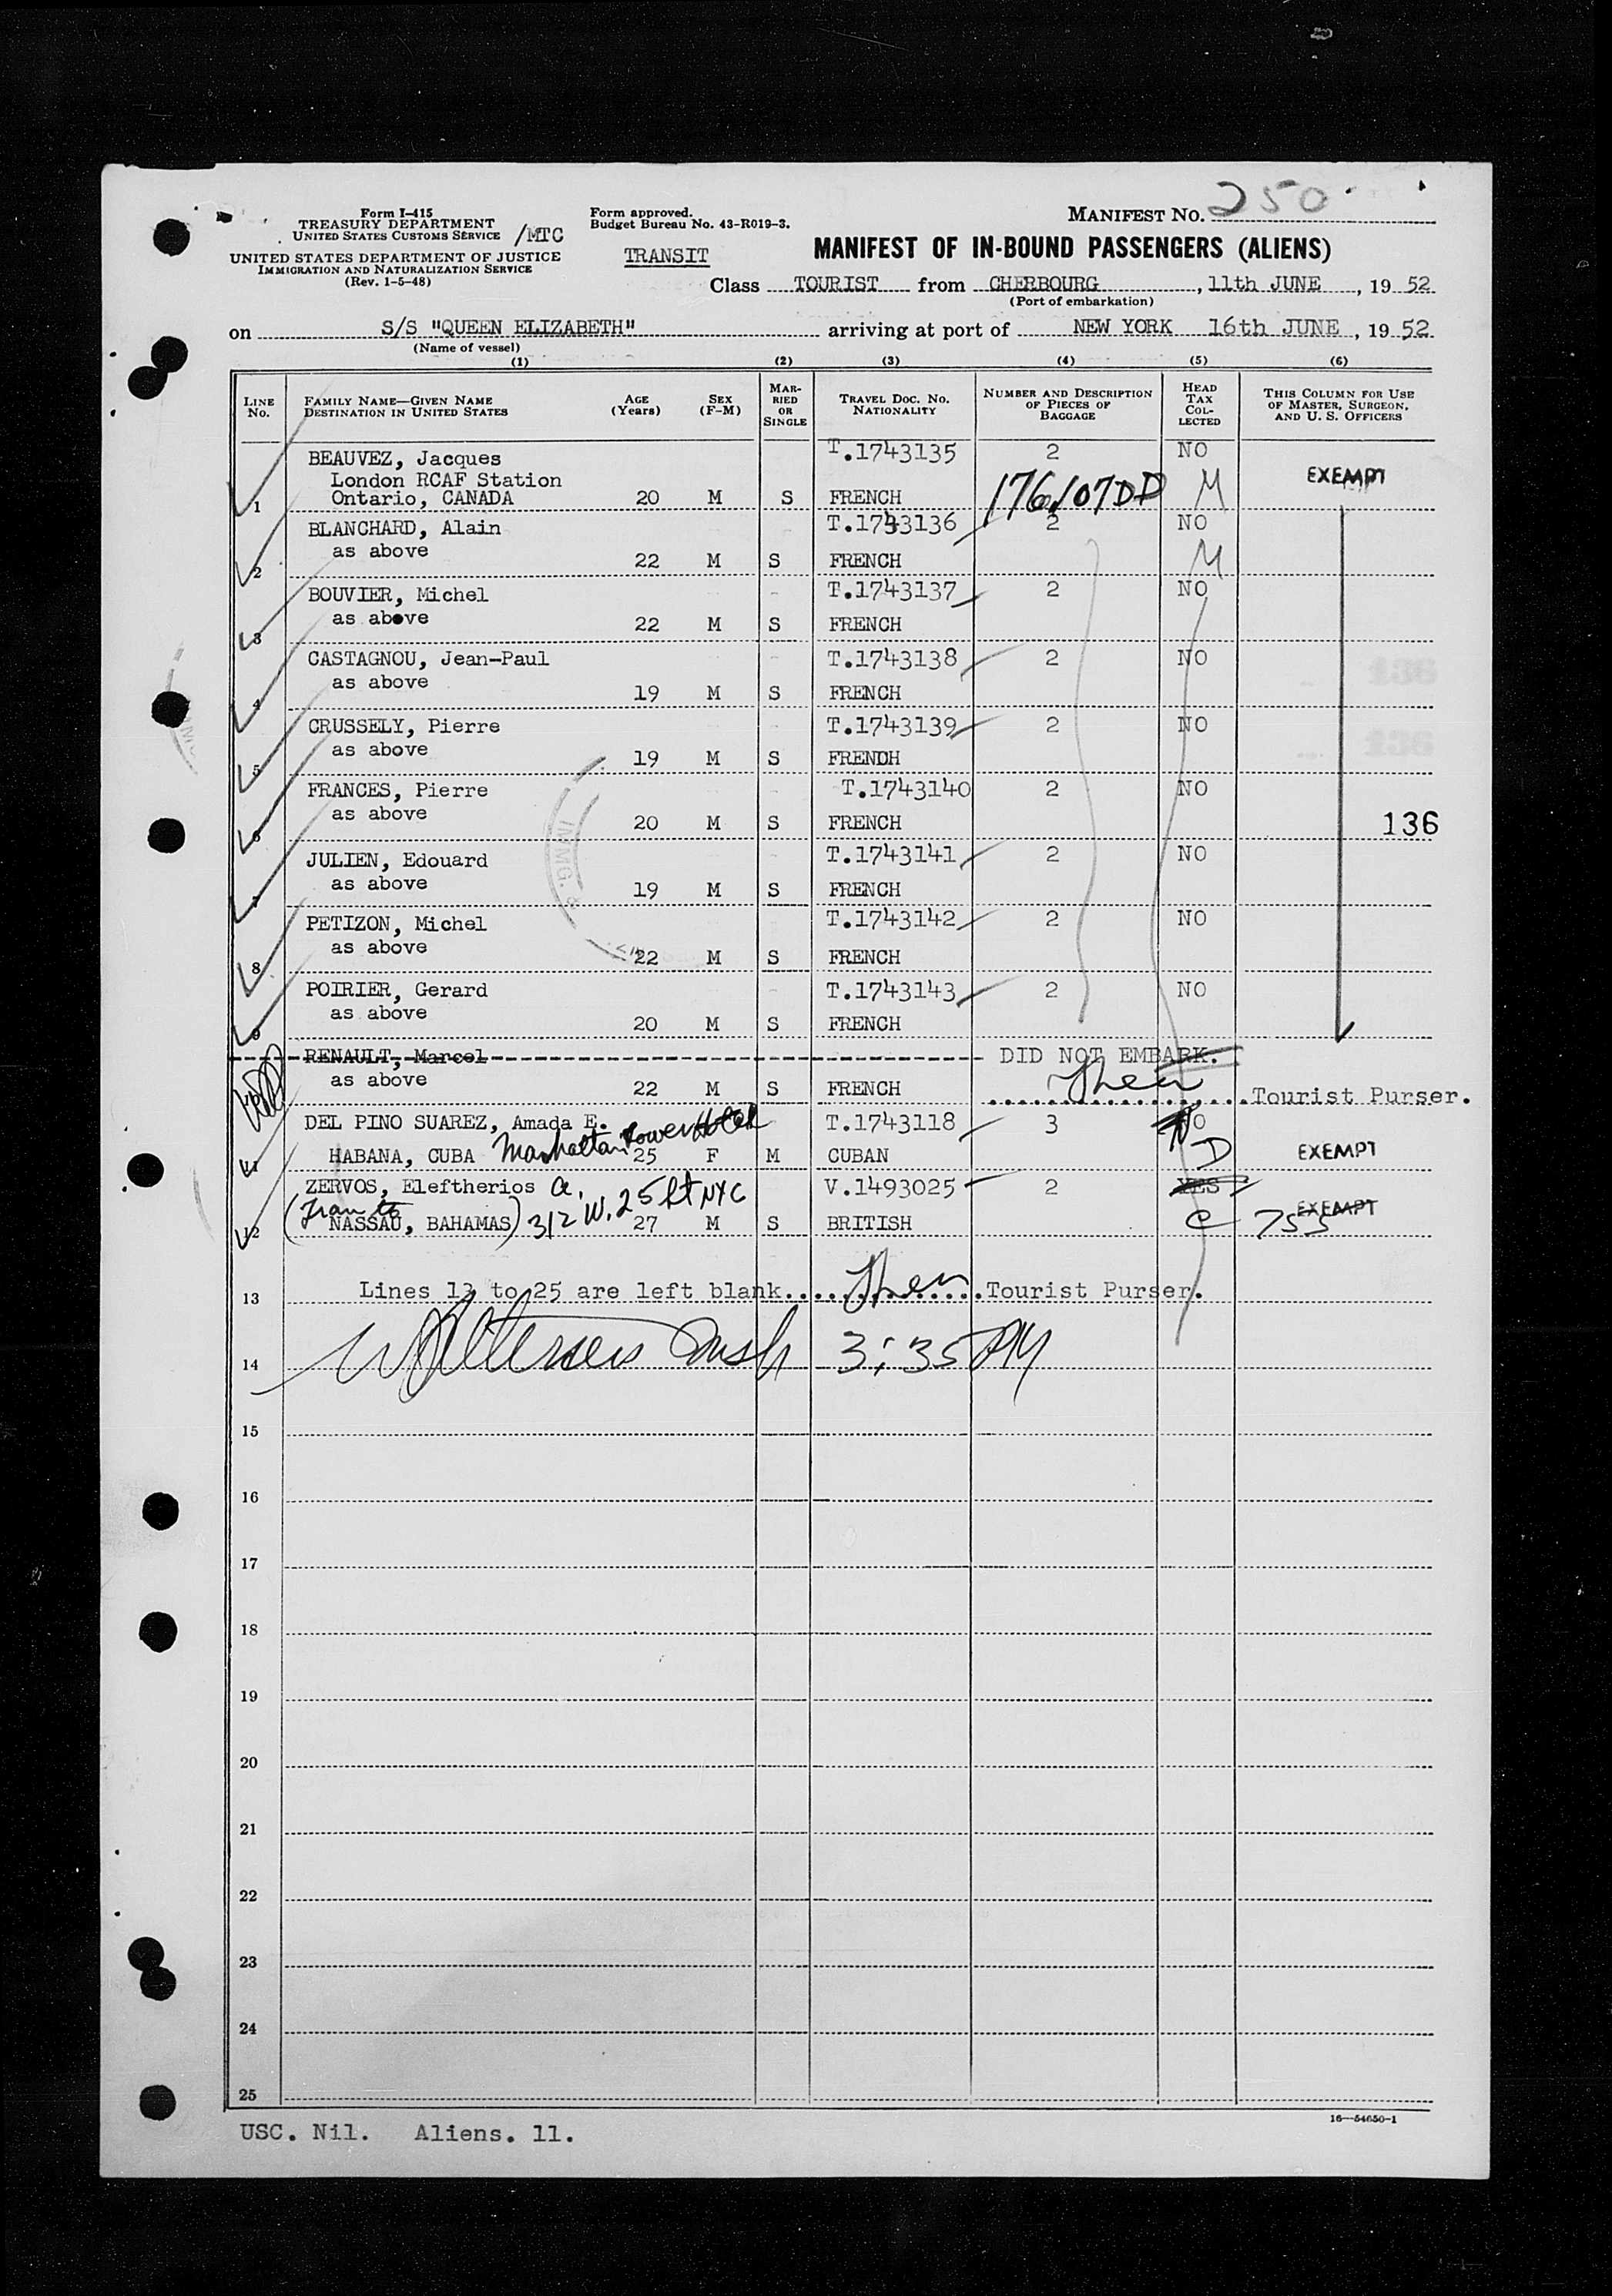 MANIFEST NO. 250
Form I-415
TREASURY DEPARTMENT
UNITED STATES CUSTOMS SERVICE /MTC
UNITED STATES DEPARTMENT OF JUSTICE
IMMIGRATION AND NATURALIZATION SERVICE
(Rev. 1-5-48)
Form approved.
Budget Bureau No. 43-R019-3.
TRANSIT
MANIFEST OF IN-BOUND PASSENGERS (ALIENS)
Class TOURIST from CHERBOURG, 11th JUNE, 19 52
(Port of embarkation)
on S/S "QUEEN ELIZABETH" arriving at port of NEW YORK 16th JUNE, 19 52
(Name of vessel)
(1) (2) (3) (4) (5) (6)
LINE No. FAMILY NAME—GIVEN NAME DESTINATION IN UNITED STATES AGE (Years) SEX (F-M) MARRIED OR SINGLE TRAVEL DOC. NO. NATIONALITY NUMBER AND DESCRIPTION OF PIECES OF BAGGAGE HEAD TAX COLLECTED THIS COLUMN FOR USE OF MASTER, SURGEON, AND U. S. OFFICERS
BEAUVEZ, Jacques T.1743135 2 NO
London RCAF Station EXEMPT
1 Ontario, CANADA 20 M S FRENCH 176/07DD M
BLANCHARD, Alain T.1743136 2 NO
2 as above 22 M S FRENCH M
BOUVIER, Michel T.1743137 2 NO
3 as above 22 M S FRENCH
CASTAGNOU, Jean-Paul T.1743138 2 NO
4 as above 19 M S FRENCH
CRUSSELY, Pierre T.1743139 2 NO
5 as above 19 M S FRENDH
FRANCES, Pierre T.1743140 2 NO
6 as above 20 M S FRENCH 136
JULIEN, Edouard T.1743141 2 NO
7 as above 19 M S FRENCH
PETIZON, Michel T.1743142 2 NO
8 as above 22 M S FRENCH
POIRIER, Gerard T.1743143 2 NO
9 as above 20 M S FRENCH
RENAULT, Marcel DID NOT EMBARK.
as above 22 M S FRENCH Tourist Purser.
DEL PINO SUAREZ, Amada E. T.1743118 3 NO
11 HABANA, CUBA Manhattan Tower Hotel 25 F M CUBAN D EXEMPT
ZERVOS, Eleftherios a. V.1493025 2 YES
12 (Transit NASSAU, BAHAMAS) 312 W. 25 St NYC 27 M S BRITISH C 755 EXEMPT
13 Lines 13 to 25 are left blank. Tourist Purser.
14 3:35 PM
15
16
17
18
19
20
21
22
23
24
25
16—54650-1
USC. Nil. Aliens. 11.